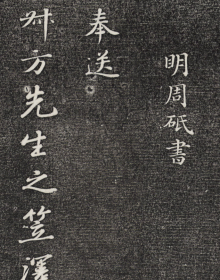 明周砥書
奉送
艸方先生之笠澤